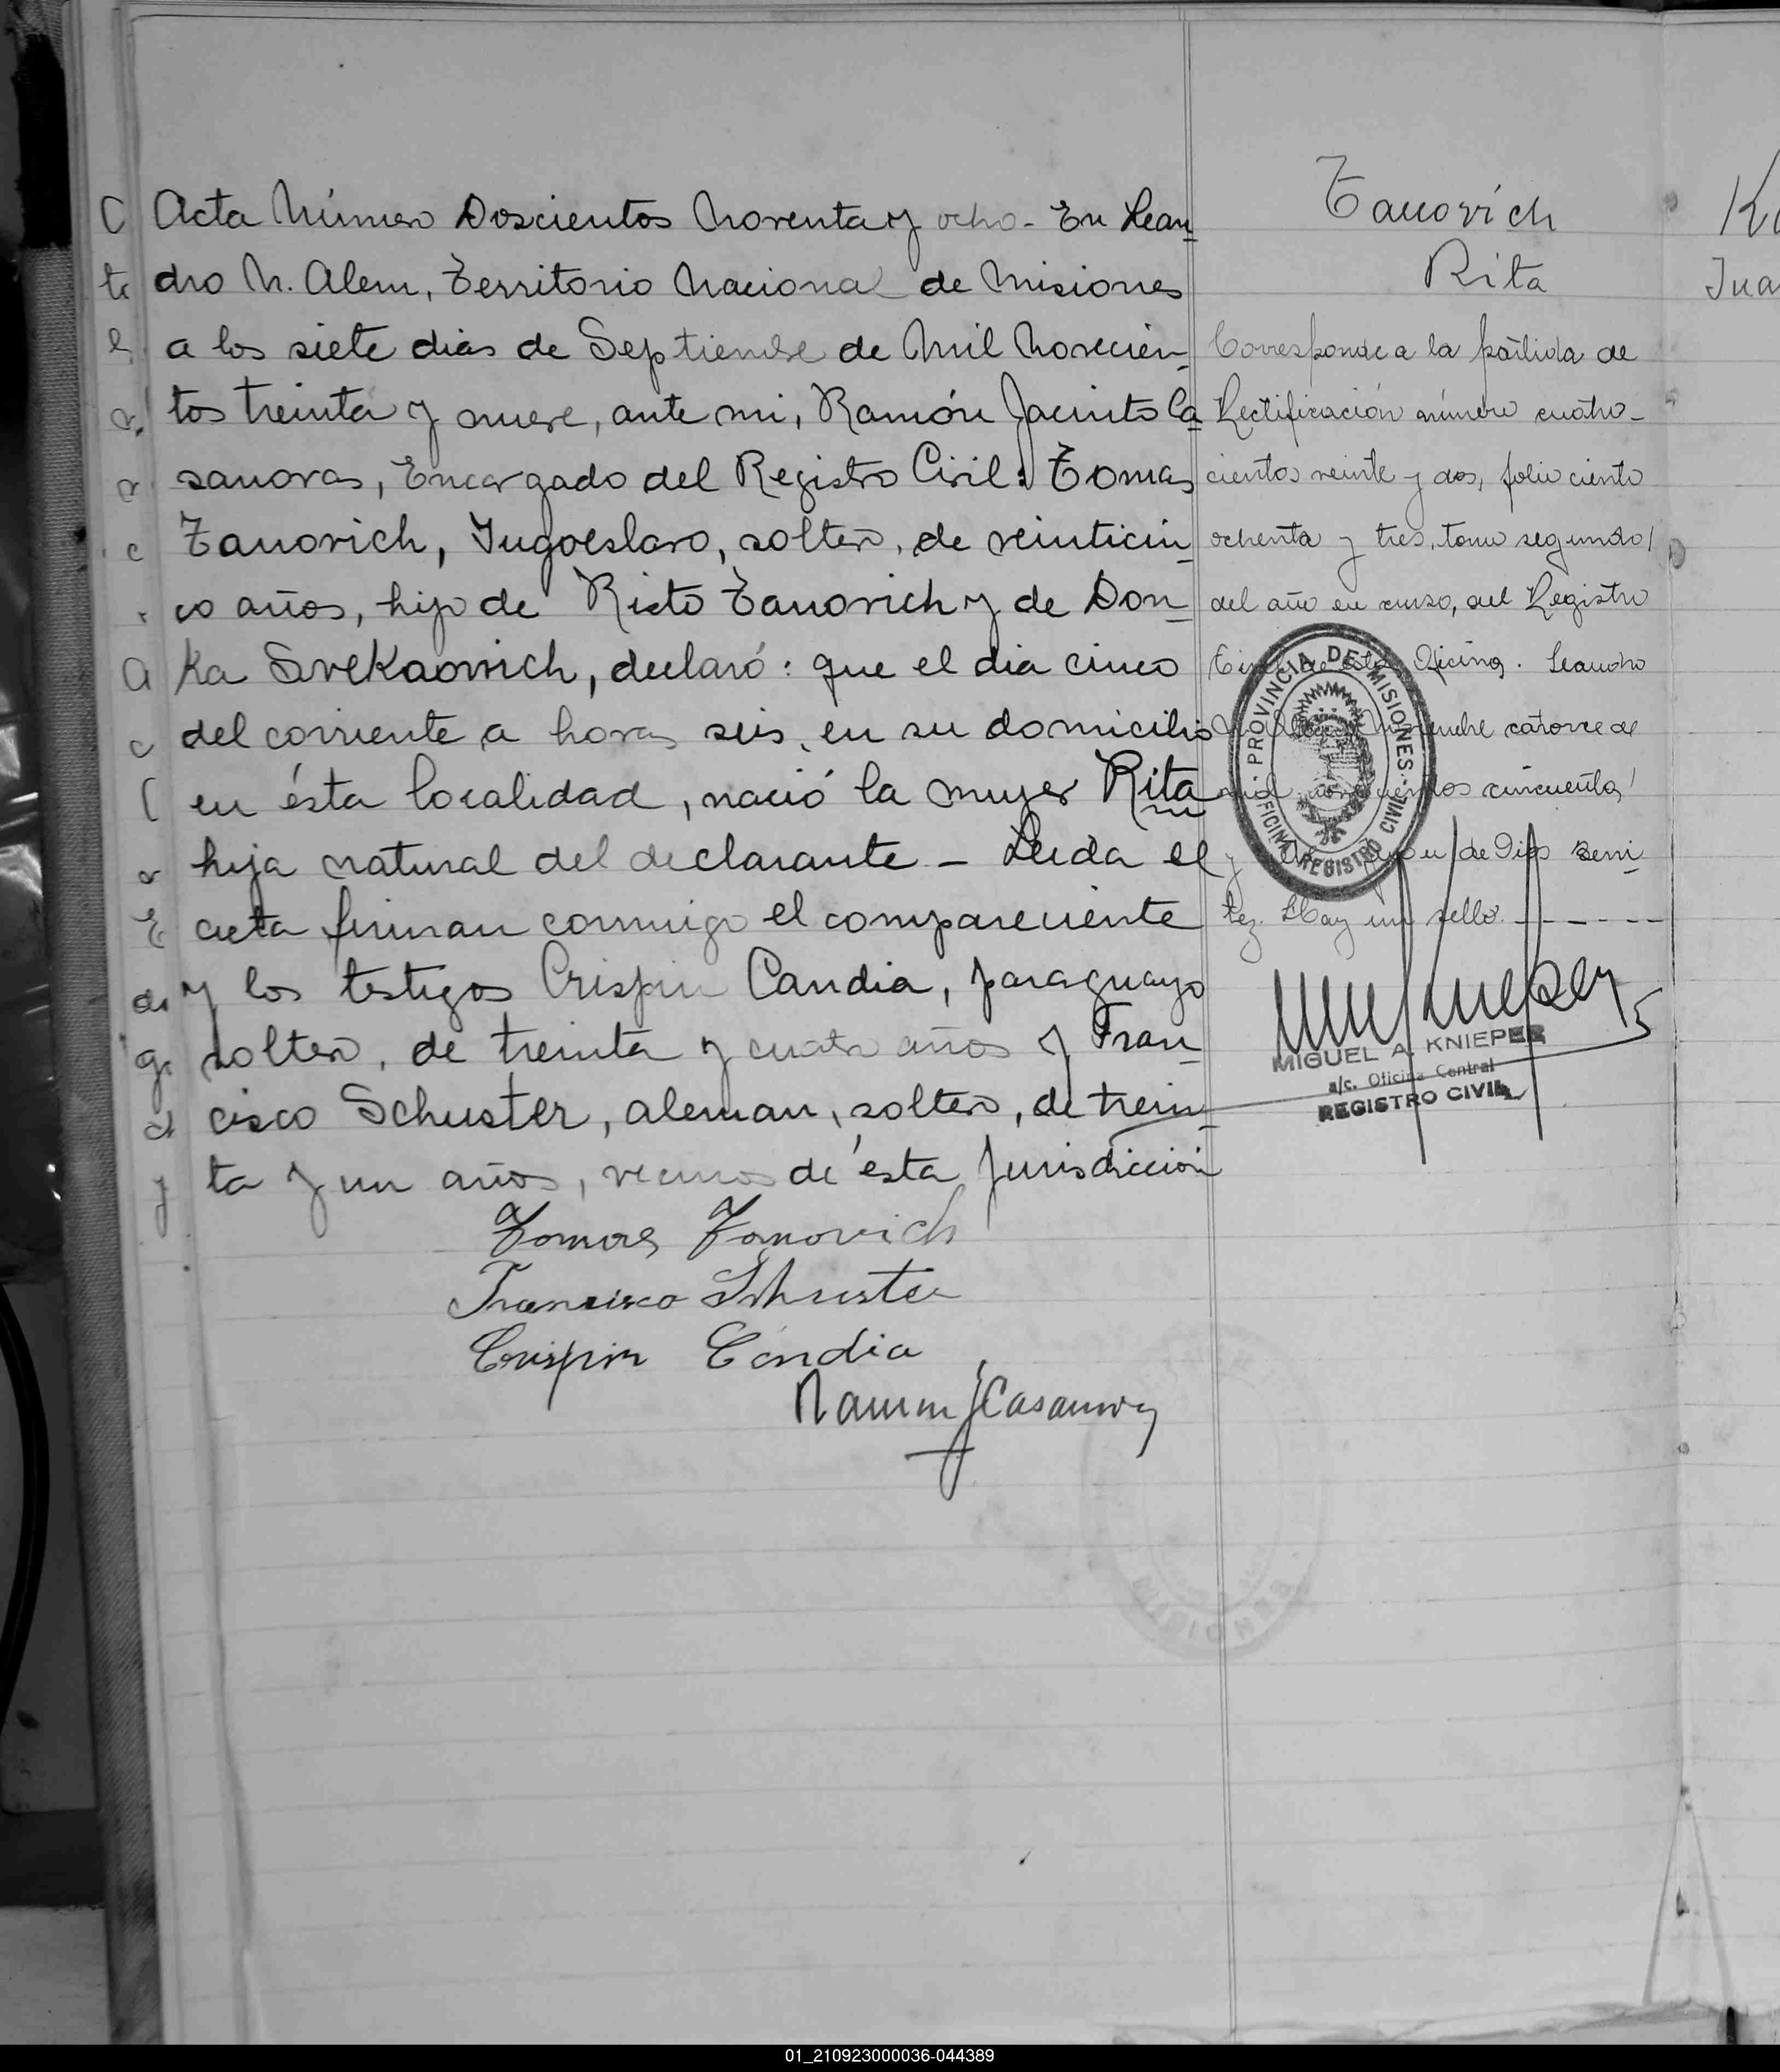 Acta Número Doscientos Noventa y ocho - En Lean
dro N. Alem, Territorio Nacional de Misiones
a los siete dias de Septiembre de Mil Novecien
tos treinta y nueve, ante mi, Ramón Jacinto Ca
sanovas, Encargado del Registro Civil: Tomas
Tanovich, Yugoeslavo, soltero, de veinticin
co años, hijo de Risto Tanovich y de Don
Ka SveKaovich, declaró: que el dia cinco
del corriente a horas seis, en su domicilio
en ésta localidad, nació la mujer Rita
hija natural del declarante - Leida el
acta firman conmigo el compareciente
y los testigos Crispin Candia, paraguayo
soltero, de treinta y cuatro años y Fran
cisco Schuster, aleman, soltero, de trein
ta y un años, vecinos de ésta Jurisdicción
Tomas Tanovich
Francisco Schuster
Crispin Candia
Ramon J Casanova
Tanovich
Rita
Corresponde a la partida de
Rectificación número cuatro-
cientos veinte y dos, folio ciento
ochenta y tres, tomo segundo/
del año en curso, del Registro
Oficina. Leandro
catorce de
cincuenta
de Dios Beni
tez. Hay un sello. - - - - -
PROVINCIA DE MISIONES
OFICINA REGISTRO CIVIL
MIGUEL A. KNIEPER
a/c. Oficina Central
REGISTRO CIVIL
MISIONES
Jua
01_210923000036-044389